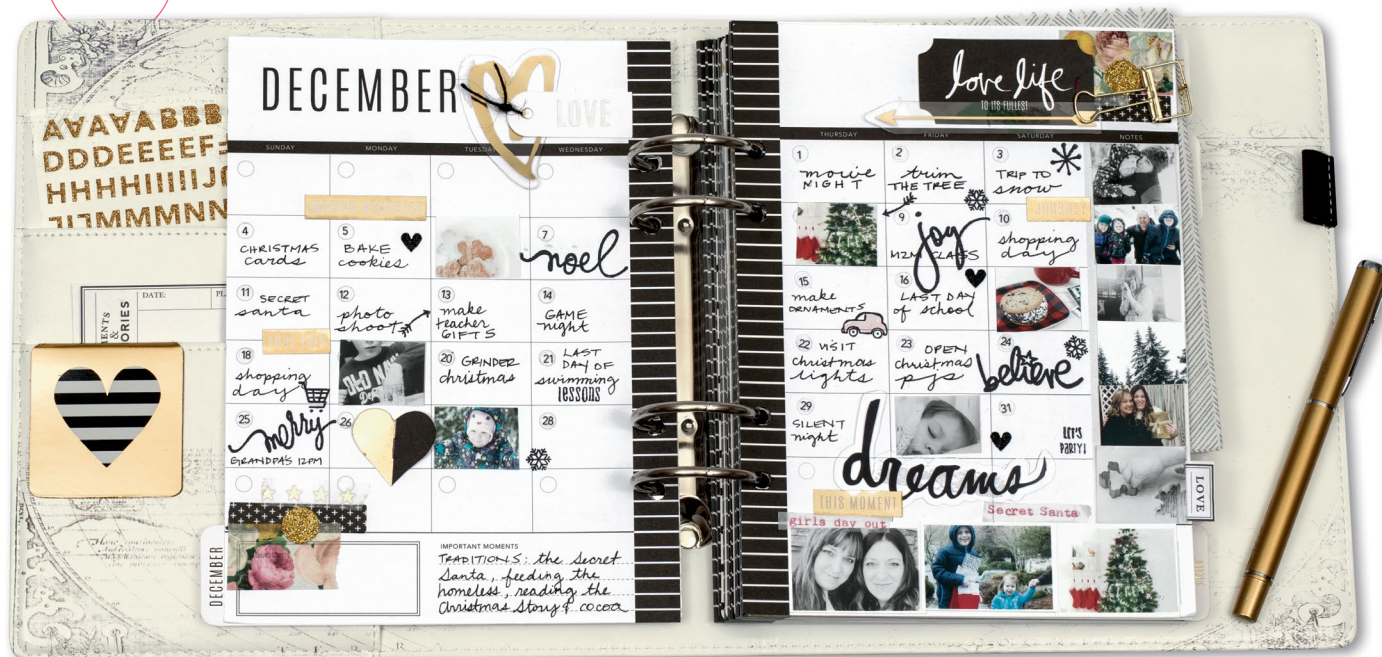 AAAAABBB
DDDEEEEF
HHHHIIIIIJ
MMMNN
DATE:
DECEMBER
LOVE
SUNDAY
MONDAY
TUESDAY
WEDNESDAY
4
CHRISTMAS
cards
5
BAKE
cookies
7
noel
11
SECRET
santa
12
photo
shoot
13
make
teacher
GIFTS
14
GAME
night
18
shopping
day
20
GRINDER
christmas
21
LAST
DAY OF
swimming
lessons
25
merry
GRANDPA'S 12PM
26
28
DECEMBER
IMPORTANT MOMENTS
TRADITIONS: the Secret
Santa, feeding the
homeless, reading the
Christmas Story & cocoa
love life
TO ITS FULLEST
THURSDAY
FRIDAY
SATURDAY
NOTES
1
movie
NIGHT
2
trim
THE TREE
3
TRIP TO
snow
9
joy
CLASS
10
shopping
day
15
make
ORNAMENTS
16
LAST DAY
of school
22
VISIT
christmas
lights
23
OPEN
christmas
pjs
24
believe
29
SILENT
night
31
LET'S
PARTY!
dreams
THIS MOMENT
girls day out
Secret Santa
LOVE